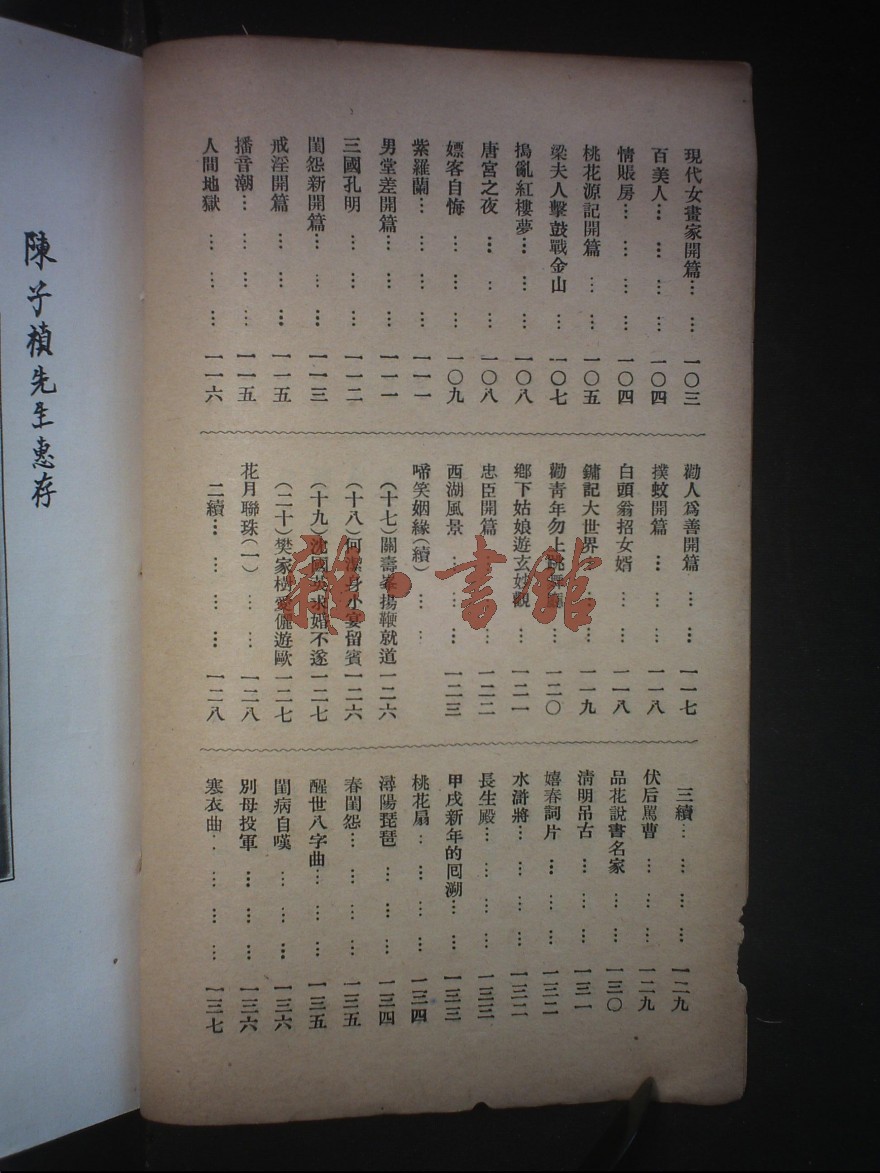 現代女畫家開篇… … 一〇三
百美人… … … … 一〇四
情賬房… … … … 一〇四
桃花源記開篇 … … 一〇五
梁夫人擊鼓戰金山 … 一〇七
搗亂紅樓夢… … … 一〇八
唐宮之夜 … … … 一〇八
嫖客自悔 … … … 一〇九
紫羅蘭… … … … 一一一
男堂差開篇… … … 一一一
三國孔明 … … … 一一二
閨怨新開篇… … … 一一三
戒淫開篇 … … … 一一五
播音潮… … … … 一一五
人間地獄 … … … 一一六
勸人爲善開篇 … … 一一七
撲蚊開篇 … … … 一一八
白頭翁招女婿 … … 一一八
鏞記大世界 … … 一一九
勸青年勿上跳舞廳 … 一二〇
鄉下姑娘遊玄妙觀 … 一二一
忠臣開篇 … … … 一二二
西湖風景 … … … 一二三
啼笑姻緣(續) … …
(十七)關壽峯揚鞭就道 一二六
(十八)何潔身小宴留賓 一二六
(十九)沈國英求婚不遂 一二七
(二十)樊家樹愛儷遊歐 一二七
花月聯珠(一) … … 一二八
二續… … … … 一二八
三續… … … … 一二九
伏后罵曹 … … … 一二九
品花說書名家 … … 一三〇
清明吊古 … … … 一三一
嬉春詞片 … … … 一三二
水滸將… … … … 一三二
長生殿… … … … 一三三
甲戌新年的囘溯… … 一三三
桃花扇… … … … 一三四
潯陽琵琶 … … … 一三四
春閨怨… … … … 一三五
醒世八字曲… … … 一三五
閨病自嘆 … … … 一三六
別母投軍 … … … 一三六
寒衣曲… … … … 一三七
陳子楨先生惠存
雜·書館